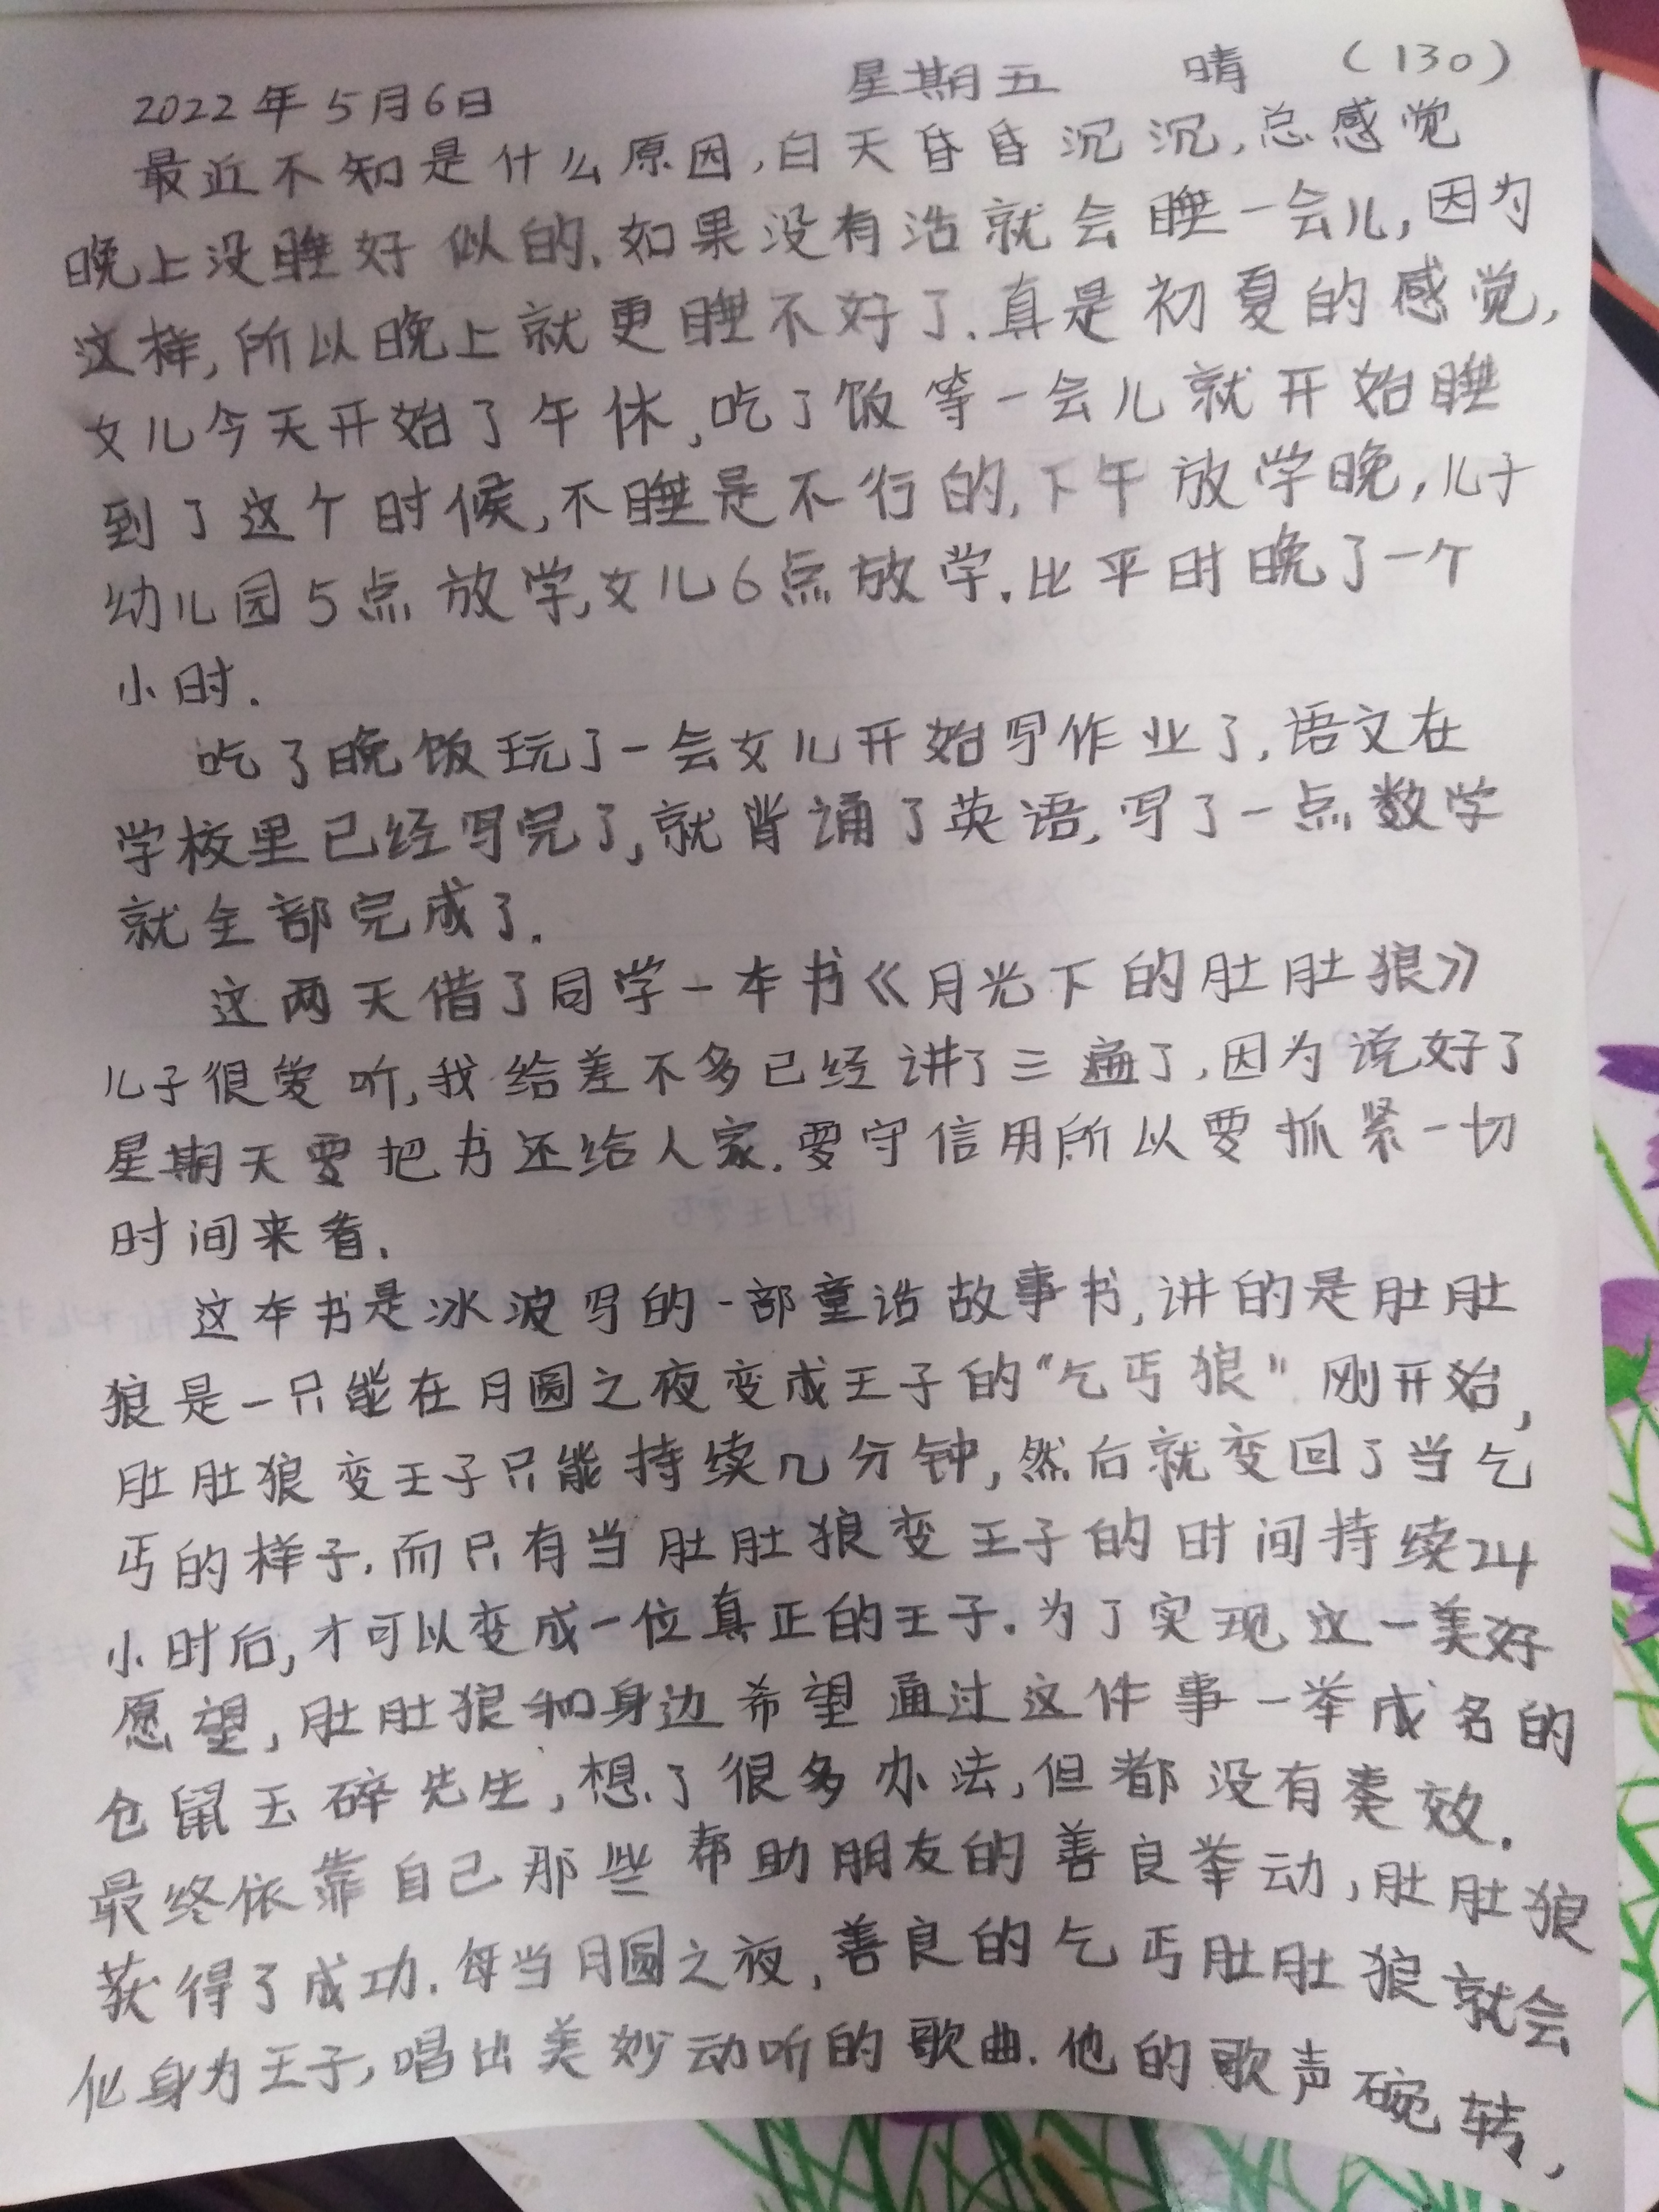 2022年5月6日 星期五 晴 (130)
最近不知是什么原因,白天昏昏沉沉,总感觉
晚上没睡好似的.如果没有活就会睡一会儿,因为
这样,所以晚上就更睡不好了.真是初夏的感觉,
女儿今天开始了午休,吃了饭等一会儿就开始睡
到了这个时候,不睡是不行的,下午放学晚,儿子
幼儿园5点放学,女儿6点放学.比平时晚了一个
小时.
吃了晚饭玩了一会女儿开始写作业了,语文在
学校里已经写完了,就背诵了英语,写了一点数学
就全部完成了.
这两天借了同学一本书《月光下的肚肚狼》
儿子很爱听,我给差不多已经讲了三遍了,因为说好了
星期天要把书还给人家.要守信用所以要抓紧一切
时间来看.
这本书是冰波写的一部童话故事书,讲的是肚肚
狼是一只能在月圆之夜变成王子的“乞丐狼”刚开始,
肚肚狼变王子只能持续几分钟,然后就变回了当乞
丐的样子.而只有当肚肚狼变王子的时间持续24
小时后,才可以变成一位真正的王子.为了实现这一美好
愿望,肚肚狼和身边希望通过这件事一举成名的
仓鼠玉碎先生,想了很多办法,但都没有奏效.
最终依靠自己那些帮助朋友的善良举动,肚肚狼
获得了成功.每当月圆之夜,善良的乞丐肚肚狼就会
化身为王子,唱出美妙动听的歌曲.他的歌声碗转,